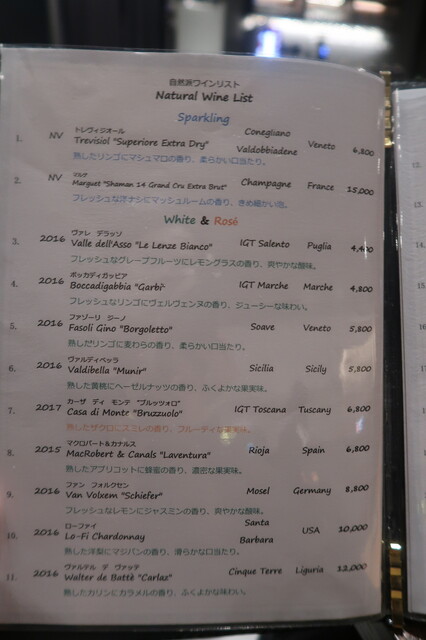 自然派ワインリスト
Natural Wine List
Sparkling
トレヴィジオール
1. NV Trevisiol "Superiore Extra Dry" Conegliano Valdobbiadene Veneto 6,800
熟したリンゴにマシュマロの香り、柔らかい口当たり。
マルゲ
2. NV Marguet "Shaman 14 Grand Cru Extra Brut" Champagne France 15,000
フレッシュな洋ナシにマッシュルームの香り、きめ細かい泡。
White & Rosé
ヴァレ デラッソ
3. 2016 Valle dell'Asso "Le Lenze Bianco" IGT Salento Puglia 4,400
フレッシュなグレープフルーツにレモングラスの香り、爽やかな酸味。
ボッカディガッビア
4. 2016 Boccadigabbia "Garbì" IGT Marche Marche 4,800
フレッシュなリンゴにヴェルヴェンヌの香り、ジューシーな味わい。
ファゾーリ ジーノ
5. 2016 Fasoli Gino "Borgoletto" Soave Veneto 5,800
熟したリンゴに麦わらの香り、柔らかい口当たり。
ヴァルディベッラ
6. 2016 Valdibella "Munir" Sicilia Sicily 5,800
熟した黄桃にヘーゼルナッツの香り、ふくよかな果実味。
カーザ ディ モンテ "ブルッツォロ"
7. 2017 Casa di Monte "Bruzzuolo" IGT Toscana Tuscany 6,800
熟したザクロにスミレの香り、フルーティな果実味。
マクロバート&カナルス
8. 2015 MacRobert & Canals "Laventura" Rioja Spain 6,800
熟したアプリコットに蜂蜜の香り、濃密な果実味。
ファン フォルクセン
9. 2016 Van Volxem "Schiefer" Mosel Germany 8,800
フレッシュなレモンにジャスミンの香り、爽やかな酸味。
ローファイ
10. 2016 Lo-Fi Chardonnay Santa Barbara USA 10,000
熟した洋梨にマジパンの香り、滑らかな口当たり。
ヴァルテル デ バッテ
11. 2016 Walter de Battè "Carlaz" Cinque Terre Liguria 12,000
熟したカリンにカラメルの香り、ふくよかな味わい。
12.
13.
14.
15.